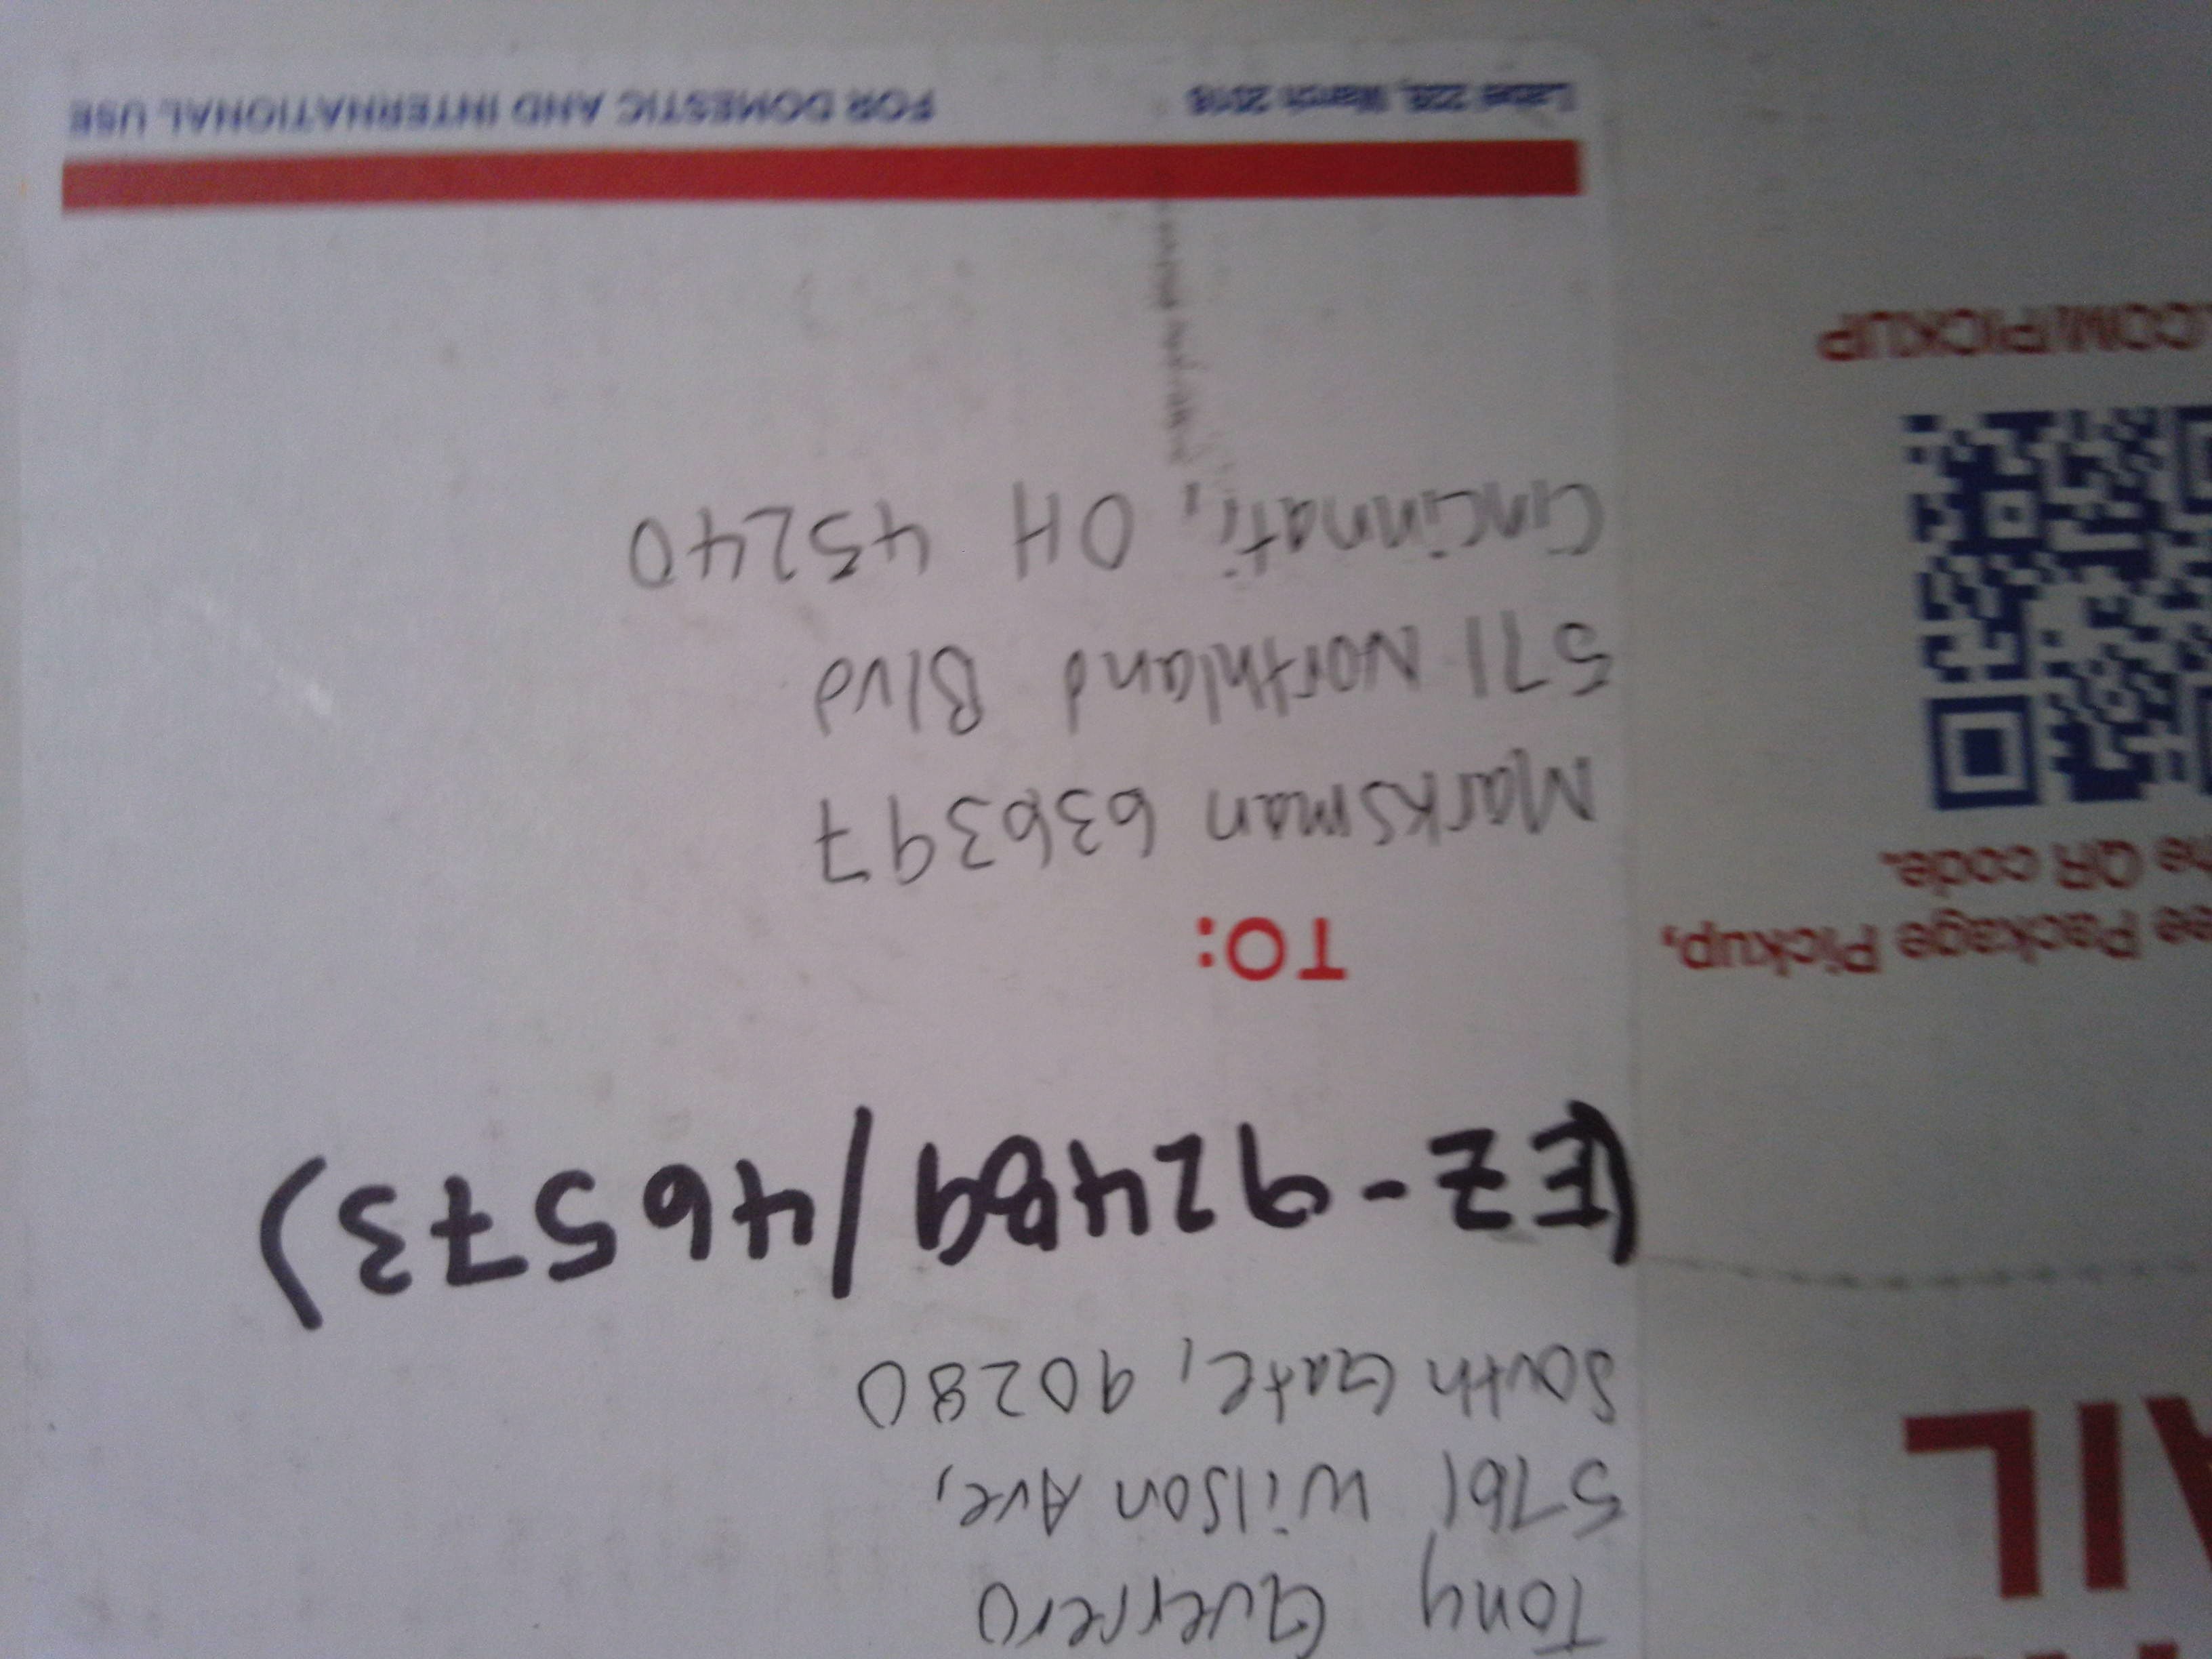 Tony Guerrero
5761 Wilson Ave,
South Gate, 90280
(EZ-92489/46573)
TO:
Marksman 636397
571 Northland Blvd
Cincinnati, OH 45240
Label 228, March 2016 FOR DOMESTIC AND INTERNATIONAL USE
AIL
ee Package Pickup,
he QR code.
.COM/PICKUP